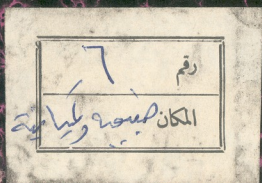 رقم ٦
المكان طبيعة وكيمياء